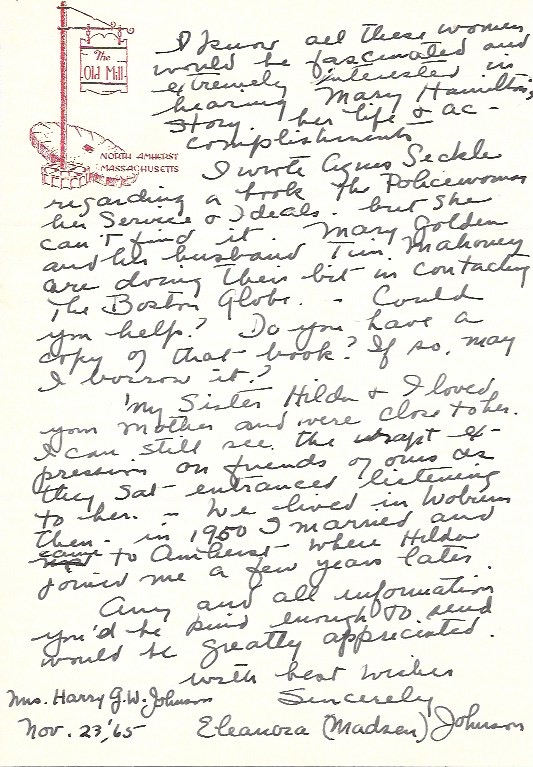 The
Old Mill
NORTH AMHERST
MASSACHUSETTS
I know all these women
would be fascinated and
extremely interested in
hearing Mary Hamilton's
story, her life & ac-
complishments
I wrote Agnes Seckle
regarding a book The Policewoman
her Service & Ideals. but she
can't find it. Mary Golden
and her husband Tim Mahoney
are doing their bit in contacting
The Boston Globe. - Could
you help? Do you have a
copy of that book? If so, may
I borrow it?
My Sister Hilda & I loved
your mother and were close to her.
I can still see the wrapt ex-
pression on friends of ours as
they sat entranced listening
to her. - We lived in Woburn
then. in 1950 I married and
came to Amherst where Hilda
joined me a few years later.
Any and all information
you'd be kind enough to send
would be greatly appreciated.
with best wishes
Sincerely
Mrs. Harry G.W. Johnson
Nov. 23,'65
Eleanora (Madsen) Johnson